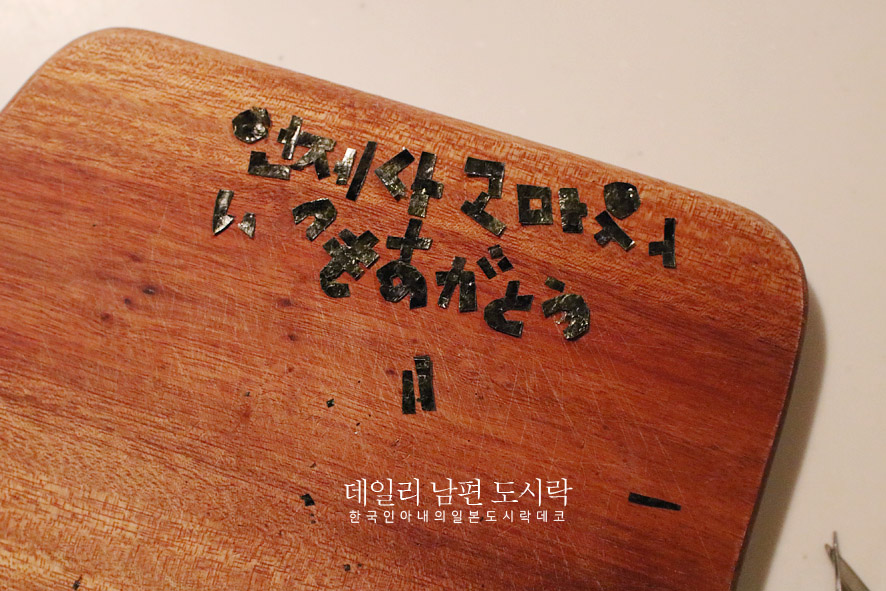 언제나 고마워
いつもあがとう
り
데일리 남편 도시락
한국인아내의일본도시락데코